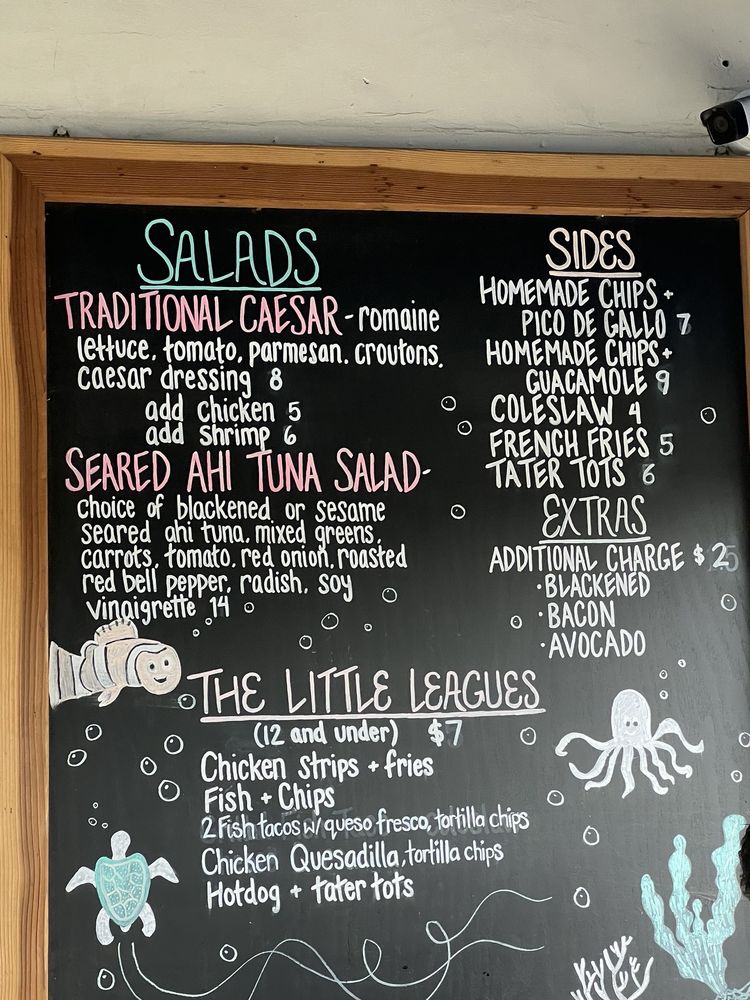 SALADS
TRADITIONAL CAESAR - romaine
lettuce, tomato, parmesan, croutons,
caesar dressing 8
add chicken 5
add shrimp 6
SEARED AHI TUNA SALAD -
choice of blackened or sesame
seared ahi tuna, mixed greens,
carrots, tomato, red onion, roasted
red bell pepper, radish, soy
vinaigrette 14
SIDES
HOMEMADE CHIPS +
PICO DE GALLO 7
HOMEMADE CHIPS +
GUACAMOLE 9
COLESLAW 4
FRENCH FRIES 5
TATER TOTS 6
EXTRAS
ADDITIONAL CHARGE $2
· BLACKENED
· BACON
· AVOCADO
THE LITTLE LEAGUES
(12 and under) $7
Chicken Strips + fries
Fish + Chips
2 Fish tacos w/ queso fresco, tortilla chips
Chicken Quesadilla, tortilla chips
Hotdog + tater tots